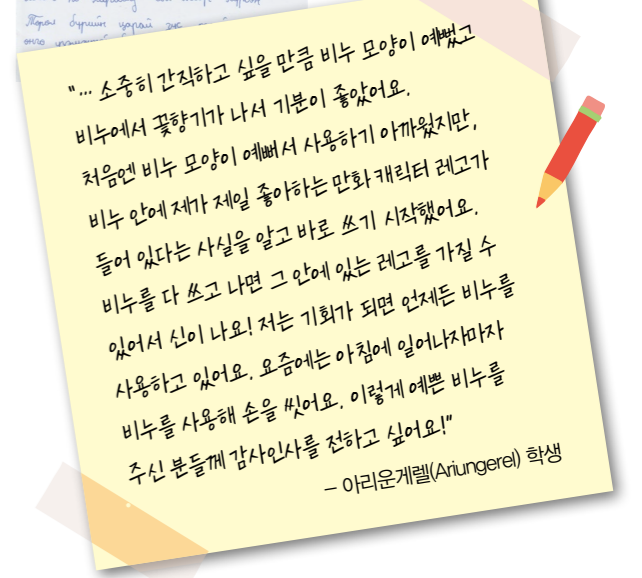 Төрөл бүрийн царай
"... 소중히 간직하고 싶을 만큼 비누 모양이 예뻤고
비누에서 꽃향기가 나서 기분이 좋았어요.
처음엔 비누 모양이 예뻐서 사용하기 아까웠지만,
비누 안에 제가 제일 좋아하는 만화 캐릭터 레고가
들어 있다는 사실을 알고 바로 쓰기 시작했어요.
비누를 다 쓰고 나면 그 안에 있는 레고를 가질 수
있어서 신이 나요! 저는 기회가 되면 언제든 비누를
사용하고 있어요. 요즘에는 아침에 일어나자마자
비누를 사용해 손을 씻어요. 이렇게 예쁜 비누를
주신 분들께 감사인사를 전하고 싶어요!"
– 아리운게렐(Ariungerel) 학생